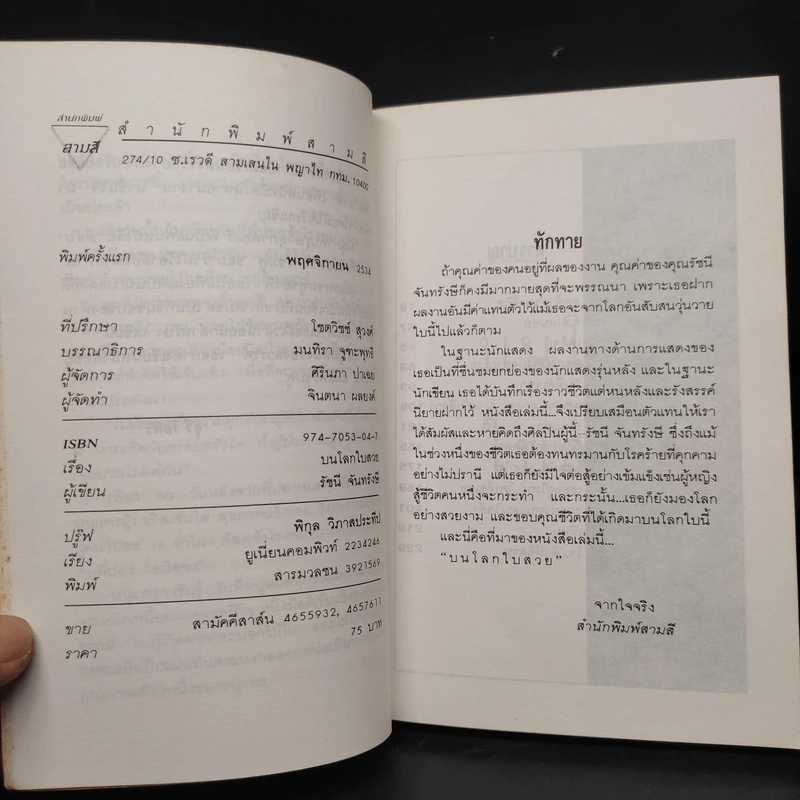 สำนักพิมพ์
สามสี
สำนักพิมพ์สามสี
274/10 ซ.เรวดี สามเสนใน พญาไท กทม. 10400
พิมพ์ครั้งแรก พฤศจิกายน 2534
ที่ปรึกษา โชตวิชช์ สุวงศ์
บรรณาธิการ มนทิรา จูฑะพุทธิ
ผู้จัดการ ศิรินภา ปาเฉย
ผู้จัดทำ จินตนา ผลยงค์
ISBN 974-7053-04-7
เรื่อง บนโลกใบสวย
ผู้เขียน รัชนี จันทรังษี
ปรู๊ฟ พิกุล วิภาสประทีป
เรียง ยูเนี่ยนคอมพิวท์ 2234246
พิมพ์ สารมวลชน 3921569
ขาย สามัคคีสาส์น 4655932, 4657611
ราคา 75 บาท
ทักทาย
ถ้าคุณค่าของคนอยู่ที่ผลของงาน คุณค่าของคุณรัชนี
จันทรังษีก็คงมีมากมายสุดที่จะพรรณนา เพราะเธอฝาก
ผลงานอันมีค่าแทนตัวไว้แม้เธอจะจากโลกอันสับสนวุ่นวาย
ใบนี้ไปแล้วก็ตาม
ในฐานะนักแสดง ผลงานทางด้านการแสดงของ
เธอเป็นที่ชื่นชมยกย่องของนักแสดงรุ่นหลัง และในฐานะ
นักเขียน เธอได้บันทึกเรื่องราวชีวิตแต่หนหลังและรังสรรค์
นิยายฝากไว้ หนังสือเล่มนี้...จึงเปรียบเสมือนตัวแทนให้เรา
ได้สัมผัสและหายคิดถึงศิลปินผู้นี้ รัชนี จันทรังษี ซึ่งถึงแม้
ในช่วงหนึ่งของชีวิตเธอต้องทนทรมานกับโรคร้ายที่คุกคาม
อย่างไม่ปรานี แต่เธอก็ยังมีใจต่อสู้อย่างเข้มแข็งเช่นผู้หญิง
สู้ชีวิตคนหนึ่งจะกระทำ และกระนั้น...เธอก็ยังมองโลก
อย่างสวยงาม และขอบคุณชีวิตที่ได้เกิดมาบนโลกใบนี้
และนี่คือที่มาของหนังสือเล่มนี้...
"บนโลกใบสวย"
จากใจจริง
สำนักพิมพ์สามสี